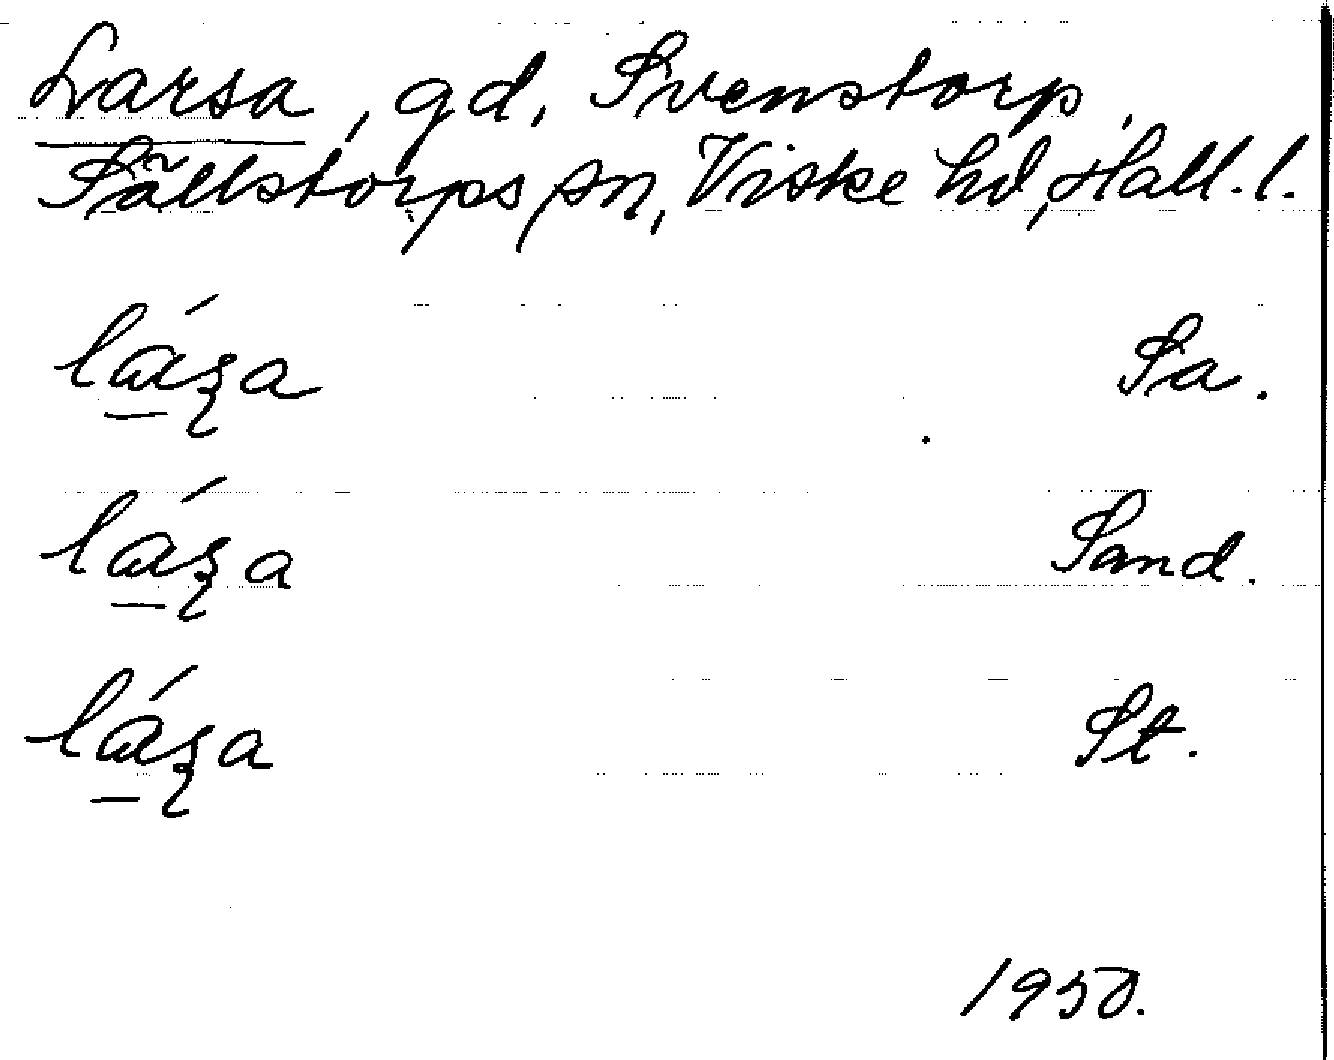 Larsa, gd, Svenstorp,
Sällstorps sn, Viske hd, Hall. l.
lá̱ʂa Sa.
lá̱ʂa Sand.
lá̱ʂa St.
1950.